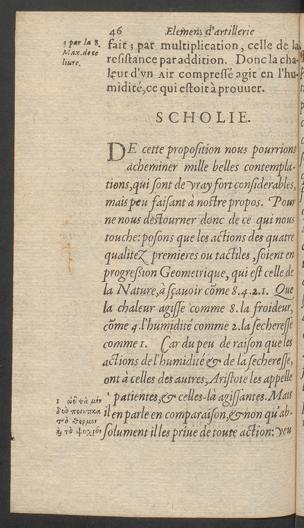 46 Elemens d'artillerie
3 par la 8.
Max. de ce
liure.
fait 3 par multiplication, celle de la
resistance par addition. Donc la cha-
leur d'vn air compressé agit en l'hu-
midité, ce qui estoit à prouuer.
SCHOLIE.
DE cette proposition nous pourrions
acheminer mille belles contempla-
tions, qui sont de vray fort considerables,
mais peu faisant à nostre propos. Pour
ne nous destourner donc de ce qui nous
touche: posons que les actions des quatre
qualitez premieres ou tactiles, soient en
progression Geometrique, qui est celle de
la Nature, à sçauoir cõme 8.4.2.1. Que
la chaleur agisse comme 8. la froideur,
cõme 4. l'humidité comme 2. la secheresse
comme 1. Car du peu de raison que les
actions de l'humidité & de la secheresse,
ont à celles des autres, Aristote les appelle
1 patientes, & celles-là agissantes. Mais
il en parle en comparaison, & non qu'ab-
solument il les priue de toute action: veu
1